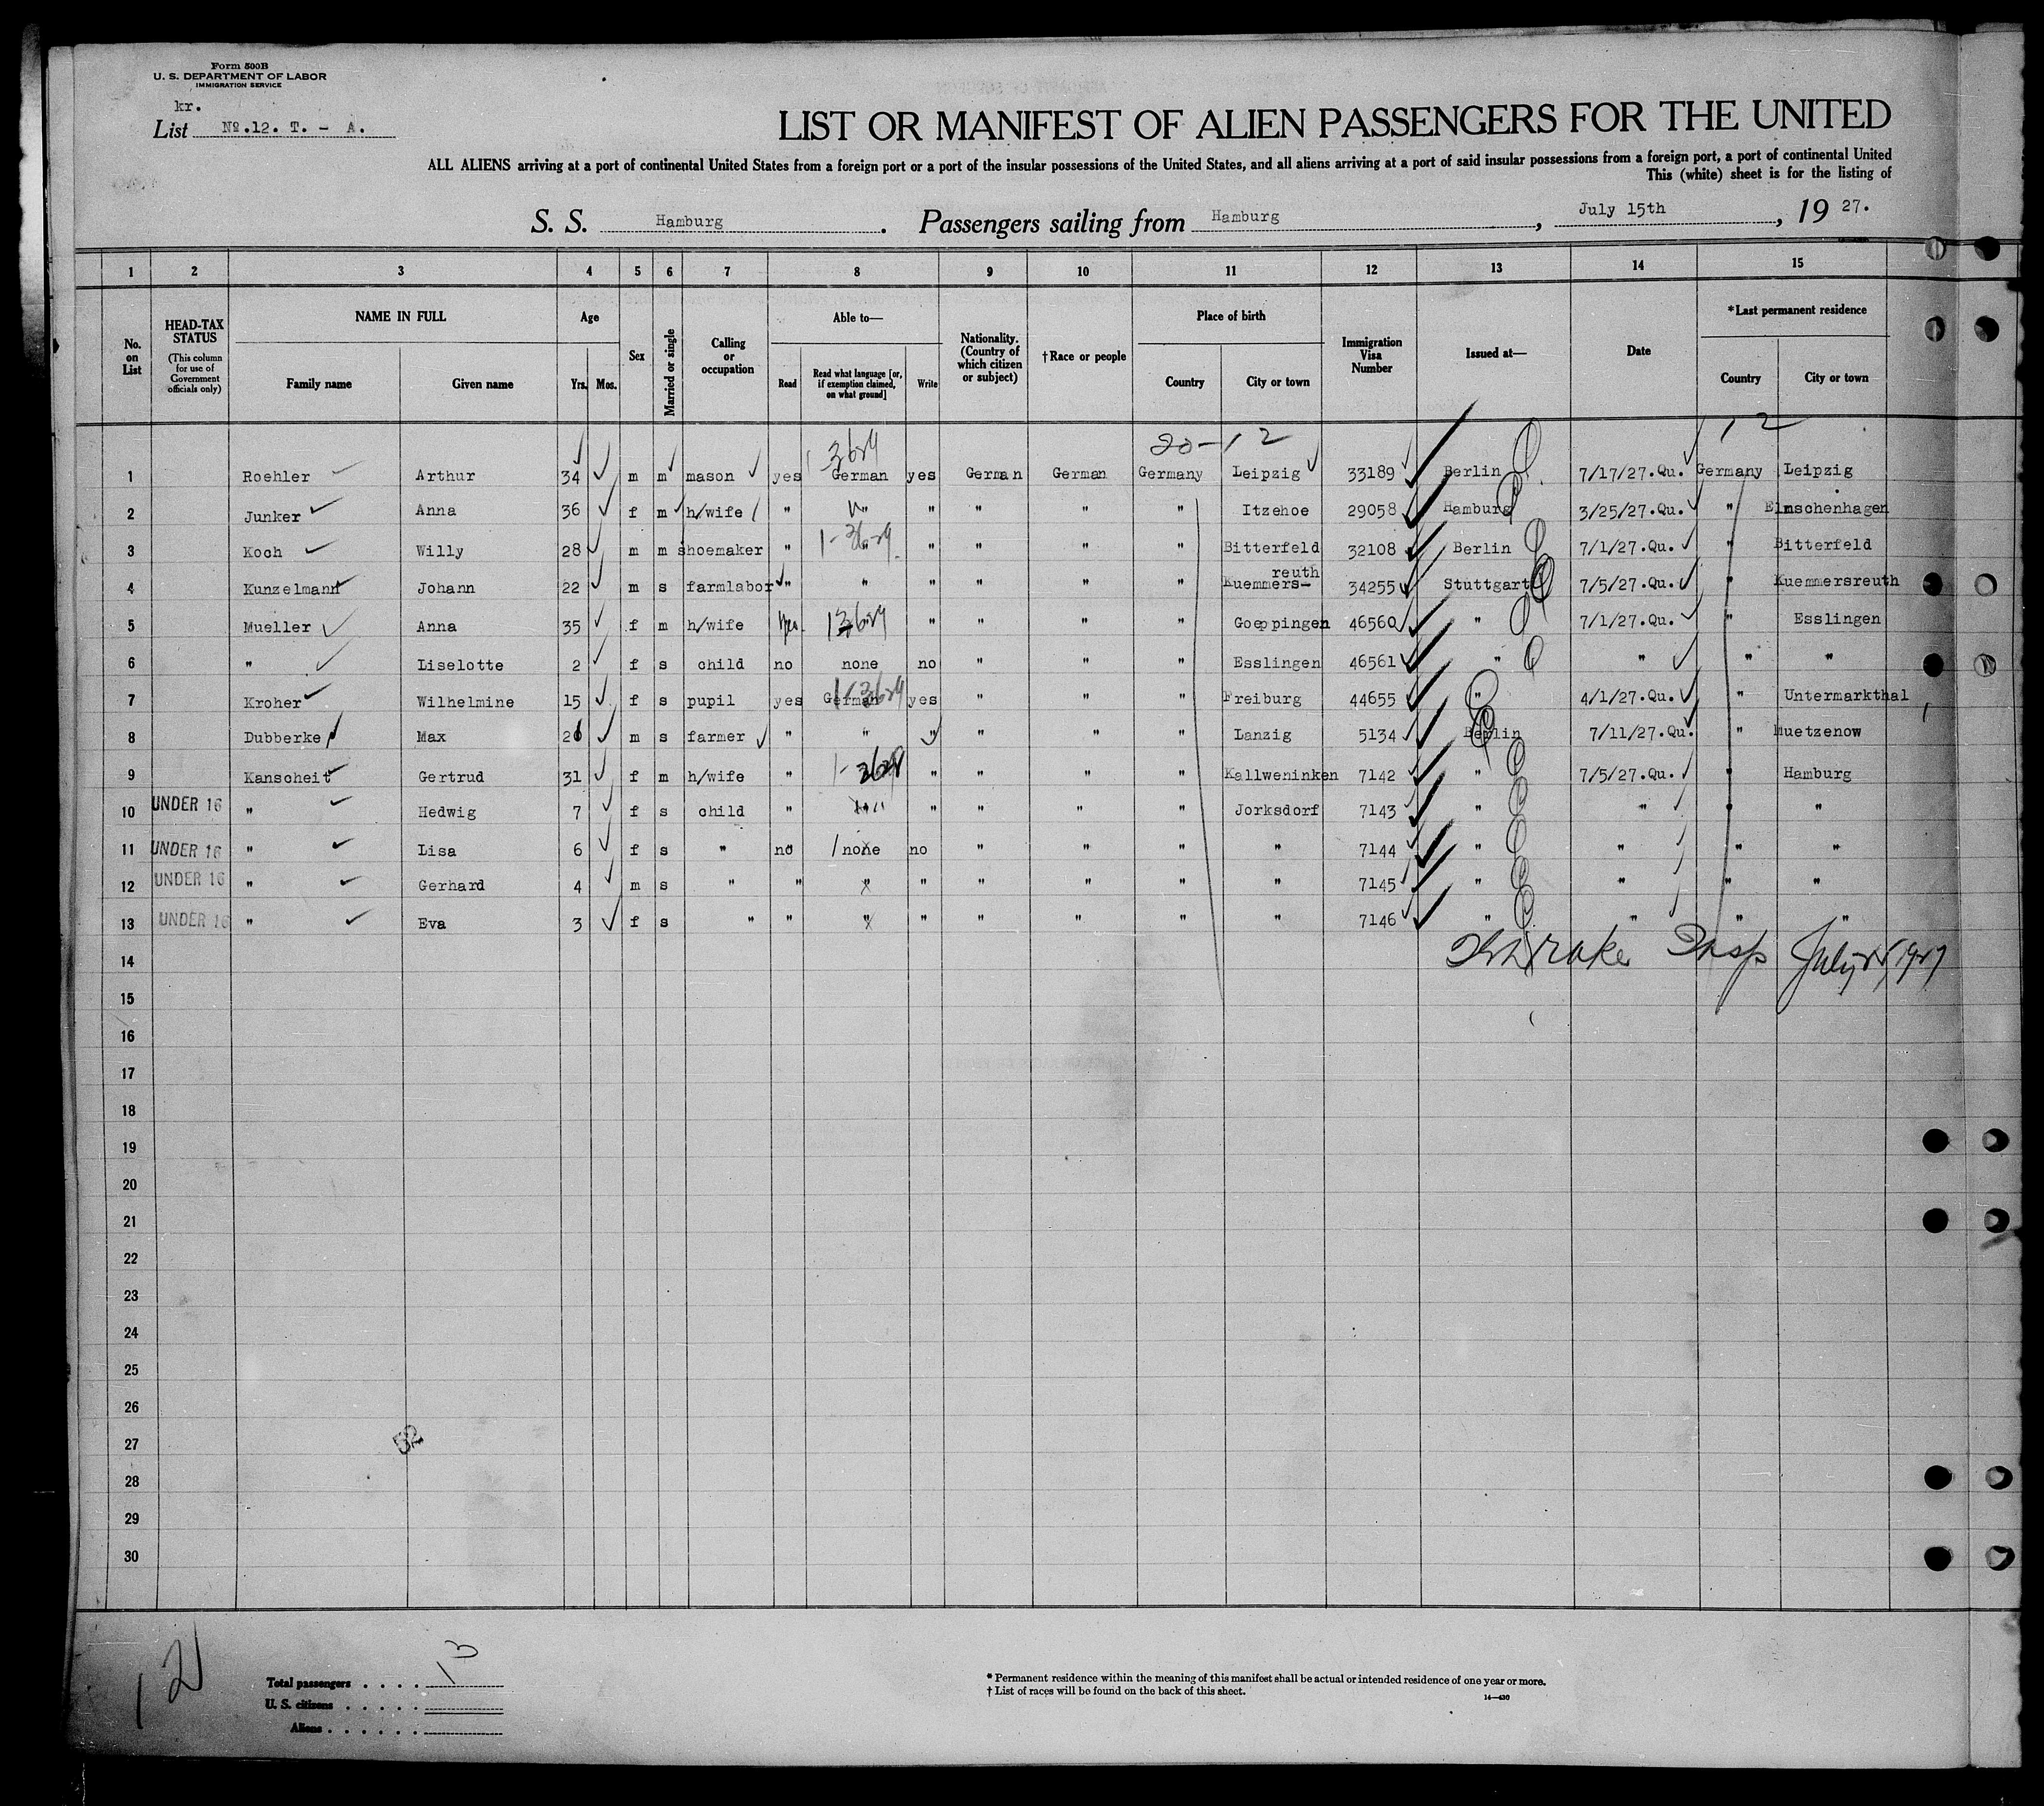 Form 500B
U. S. DEPARTMENT OF LABOR
IMMIGRATION SERVICE
kr.
List No.12. T. - A.
LIST OR MANIFEST OF ALIEN PASSENGERS FOR THE UNITED
ALL ALIENS arriving at a port of continental United States from a foreign port or a port of the insular possessions of the United States, and all aliens arriving at a port of said insular possessions from a foreign port, a port of continental United
This (white) sheet is for the listing of
S. S. Hamburg . Passengers sailing from Hamburg , July 15th , 19 27.
1 2 3 4 5 6 7 8 9 10 11 12 13 14 15
No. on List HEAD-TAX STATUS (This column for use of Government officials only) NAME IN FULL Family name Given name Age Yrs. Mos. Sex Married or single Calling or occupation Able to— Read Read what language [or, if exemption claimed, on what ground] Write Nationality. (Country of which citizen or subject) †Race or people Place of birth Country City or town Immigration Visa Number Issued at— Date *Last permanent residence Country City or town
20-12 12
1 Roehler Arthur 34 m m mason yes German yes German German Germany Leipzig 33189 Berlin 7/17/27.Qu. Germany Leipzig
2 Junker Anna 36 f m h/wife " " " " " " Itzehoe 29058 Hamburg 3/25/27.Qu. " Elmschenhagen
3 Koch Willy 28 m m shoemaker " " " " " " Bitterfeld 32108 Berlin 7/1/27.Qu. " Bitterfeld
reuth
4 Kunzelmann Johann 22 m s farmlabor " " " " " " Kuemmers- 34255 Stuttgart 7/5/27.Qu. " Kuemmersreuth
5 Mueller Anna 35 f m h/wife yes " " " " Goeppingen 46560 " 7/1/27.Qu. " Esslingen
6 " Liselotte 2 f s child no none no " " " Esslingen 46561 " " " "
7 Kroher Wilhelmine 15 f s pupil yes German yes " " " Freiburg 44655 " 4/1/27.Qu. " Untermarkthal
8 Dubberke Max 26 m s farmer " " " " " " Lanzig 5134 Berlin 7/11/27.Qu. " Muetzenow
9 Kanscheit Gertrud 31 f m h/wife " " " " " Kallweninken 7142 " 7/5/27.Qu. " Hamburg
10 UNDER 16 " Hedwig 7 f s child " " " " " " Jorksdorf 7143 " " " "
11 UNDER 16 " Lisa 6 f s " no none no " " " " 7144 " " " "
12 UNDER 16 " Gerhard 4 m s " " " " " " " " 7145 " " " "
13 UNDER 16 " Eva 3 f s " " " " " " " " 7146 " " " "
14
15
16
17
18
19
20
21
22
23
24
25
26
27
52
28
29
30
12
Total passengers . . . . 13
U. S. citizens . . . . .
Aliens . . . . . .
* Permanent residence within the meaning of this manifest shall be actual or intended residence of one year or more.
† List of races will be found on the back of this sheet.
14—430